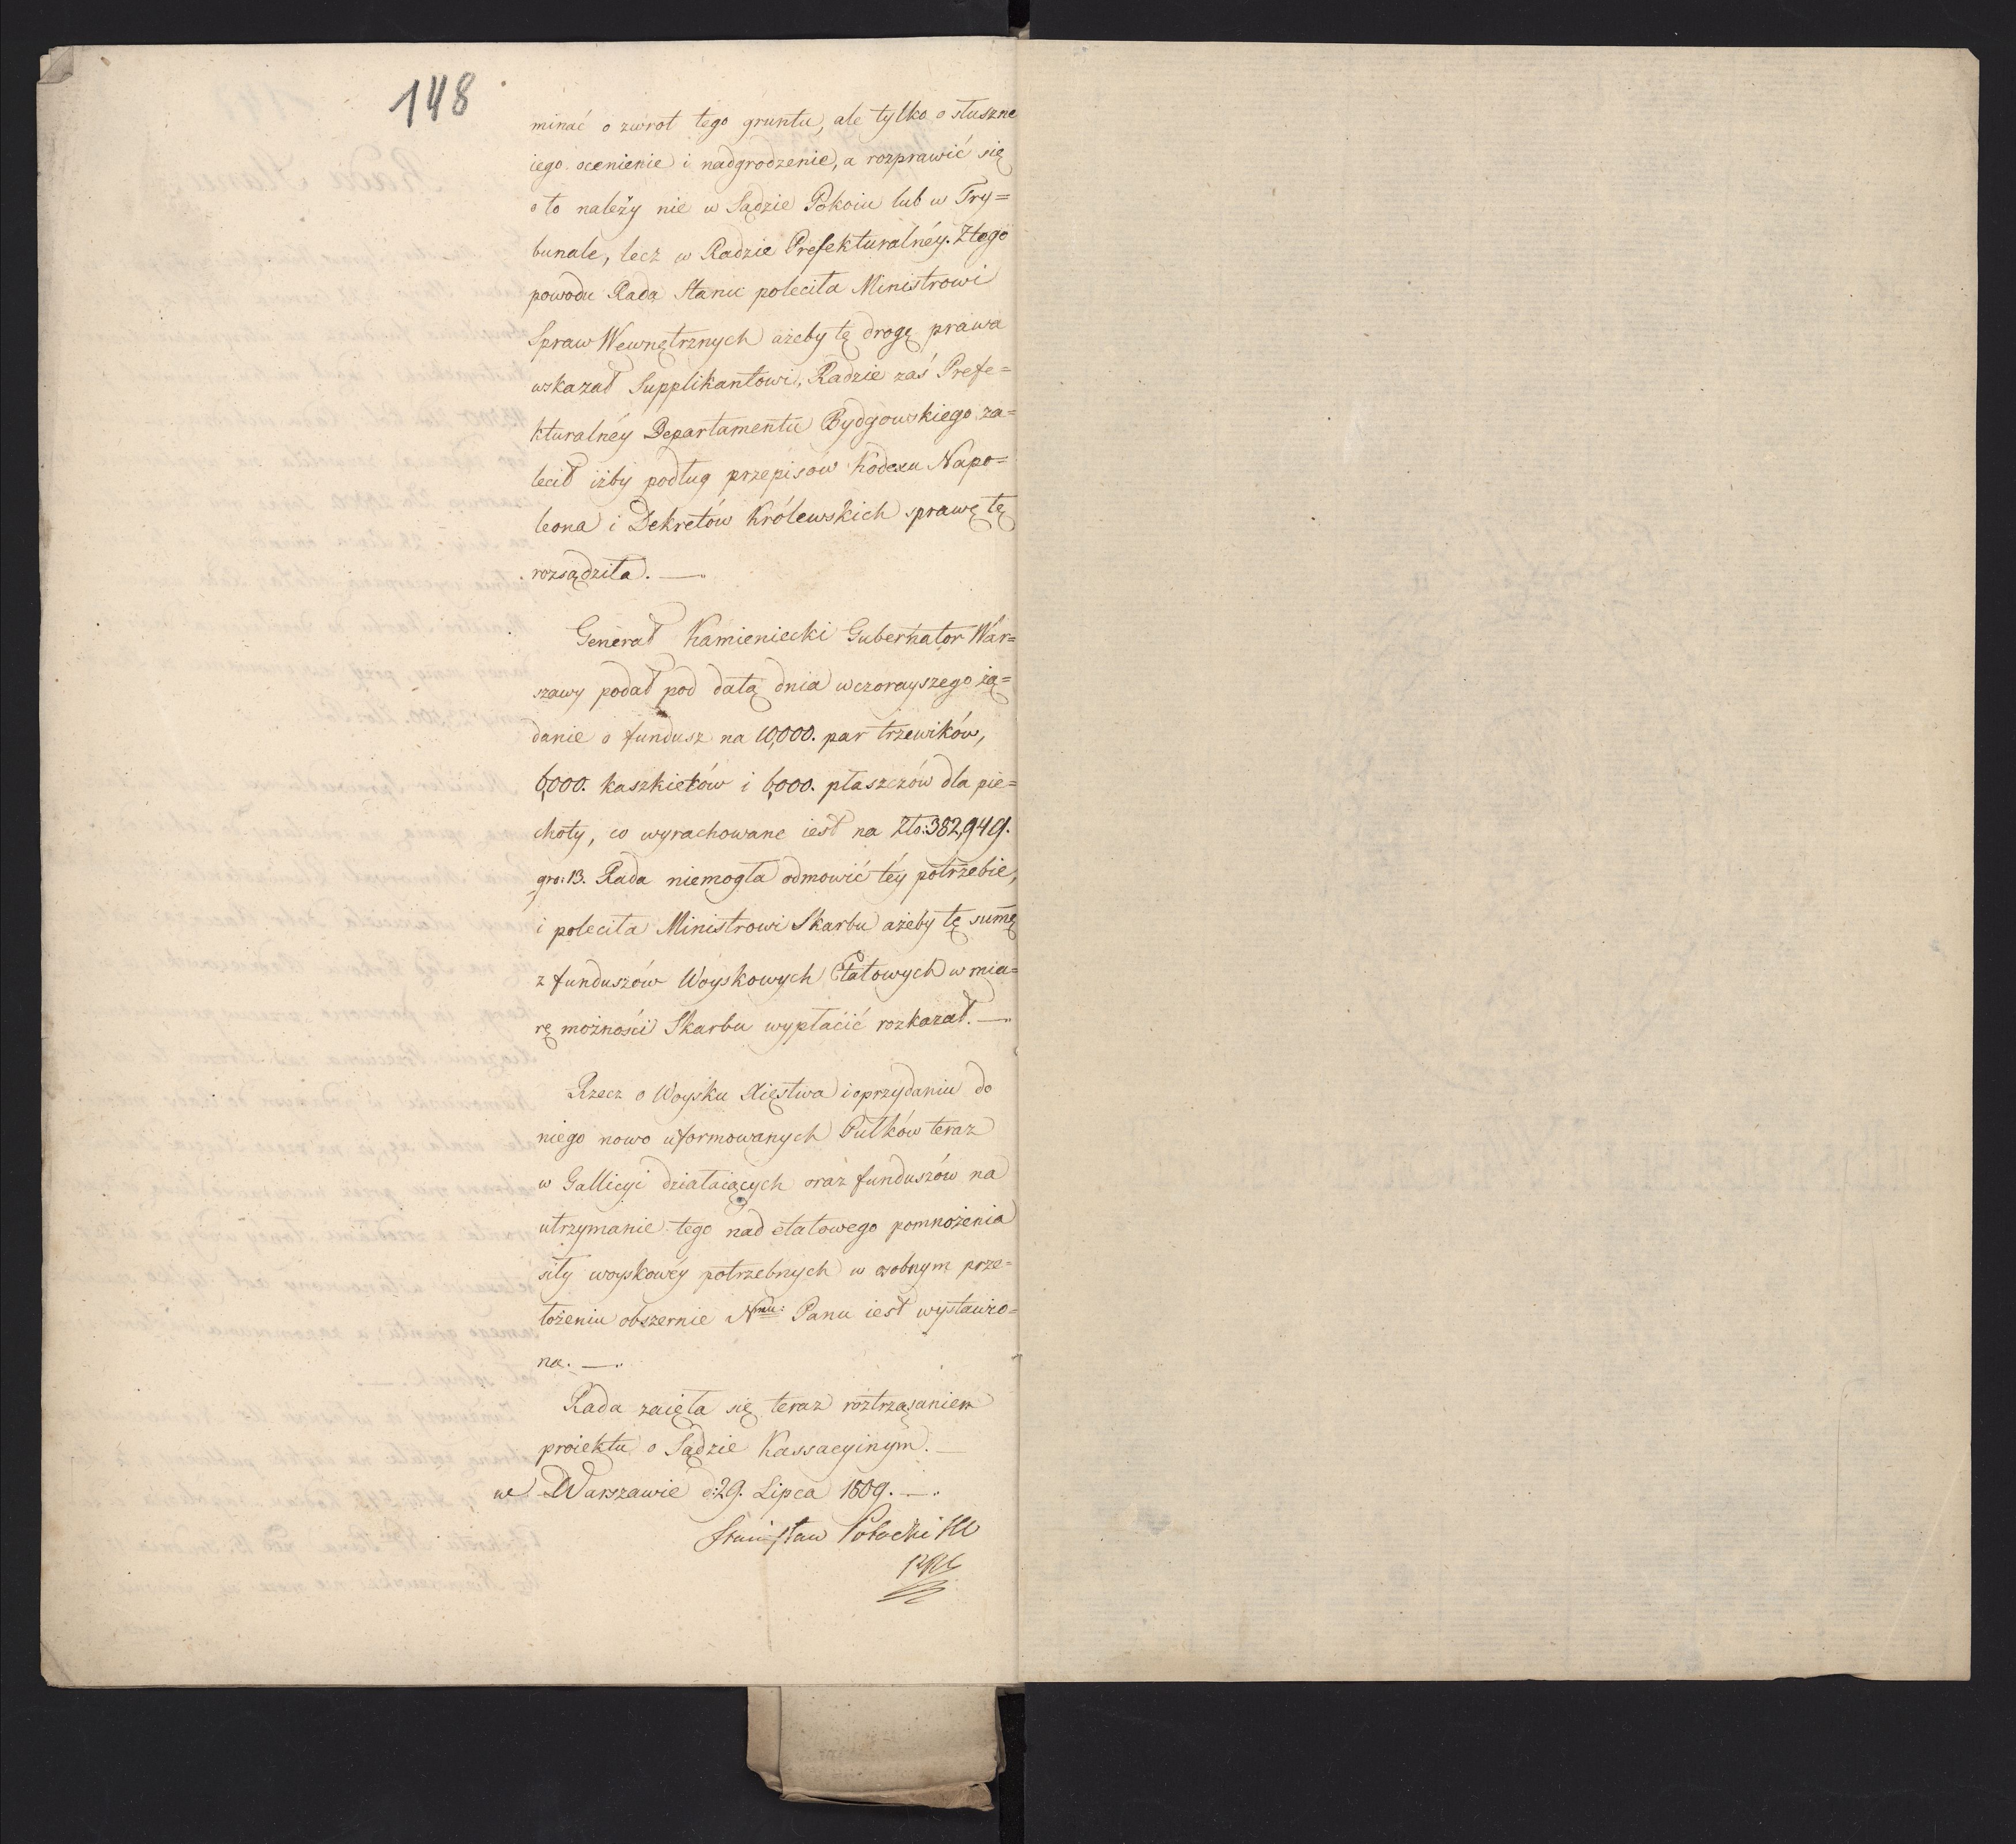 148
minać o zwrot tego gruntu, ale tylko o słuszne
iego ocenienie i nadgrodzenie, a rozprawić się
o to należy nie w Sądzie Pokoiu lub w Try=
bunale, lecz w Radzie Prefekturalnéy. Z tego
powodu Rada Stanu poleciła Ministrowi
Spraw Wewnętrznych ażeby tę drogę prawa
wskazał Supplikantowi, Radzie zaś Prefe=
kturalnéy Departamentu Bydgowskiego za=
lecił iżby podług przepisów Kodexu Napo=
leona i Dekretów Królewskich sprawę tę
rozsądziła. —
Generał Kamieniecki Gubernator War=
szawy podał pod datą dnia wczorayszego żą=
danie o fundusz na 10,000. par trzewików,
6,000. kaszkietów i 6,000. płaszczów dla pie=
choty, co wyrachowane iest na Zło: 382,949.
gro: 13. Rada niemogła odmowić téy potrzebie,
i poleciła Ministrowi Skarbu ażeby tę sumę
z funduszów Woyskowych Etatowych w mia=
rę możności Skarbu wypłacić rozkazał. —
Rzecz o Woysku Xięstwa i o przydaniu do
niego nowo uformowanych Pułków teraz
w Gallicyi działaiących oraz funduszów na
utrzymanie tego nad etatowego pomnożenia
siły woyskowéy potrzebnych w osobnym prze=
łożeniu obszernie Nmu: Panu iest wystawio=
na. —
Rada zaięła się teraz roztrząsaniem
proiektu o Sądzie Kassacyinym. —
w Warszawie d: 29. Lipca 1809. —
Stanisław Potocki